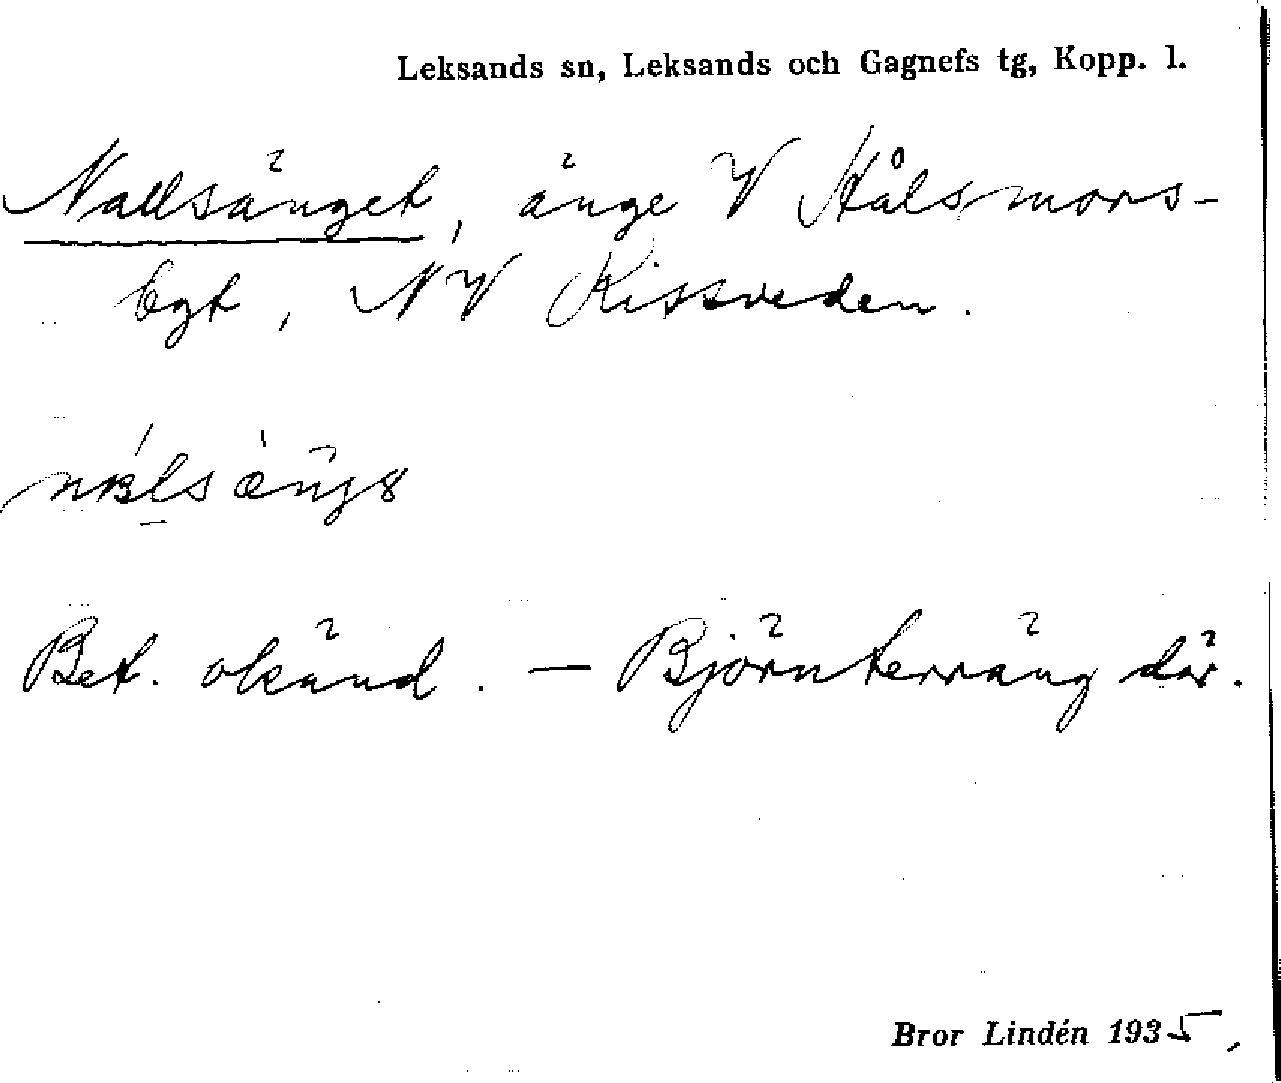 Leksands sn, Leksands och Gagnefs tg, Kopp. l.
Nallsänget, änge V Hålsmors-
bgt, NV Rissveden.
Bet. okänd. — Björnterräng där.
Bror Lindén 1935,